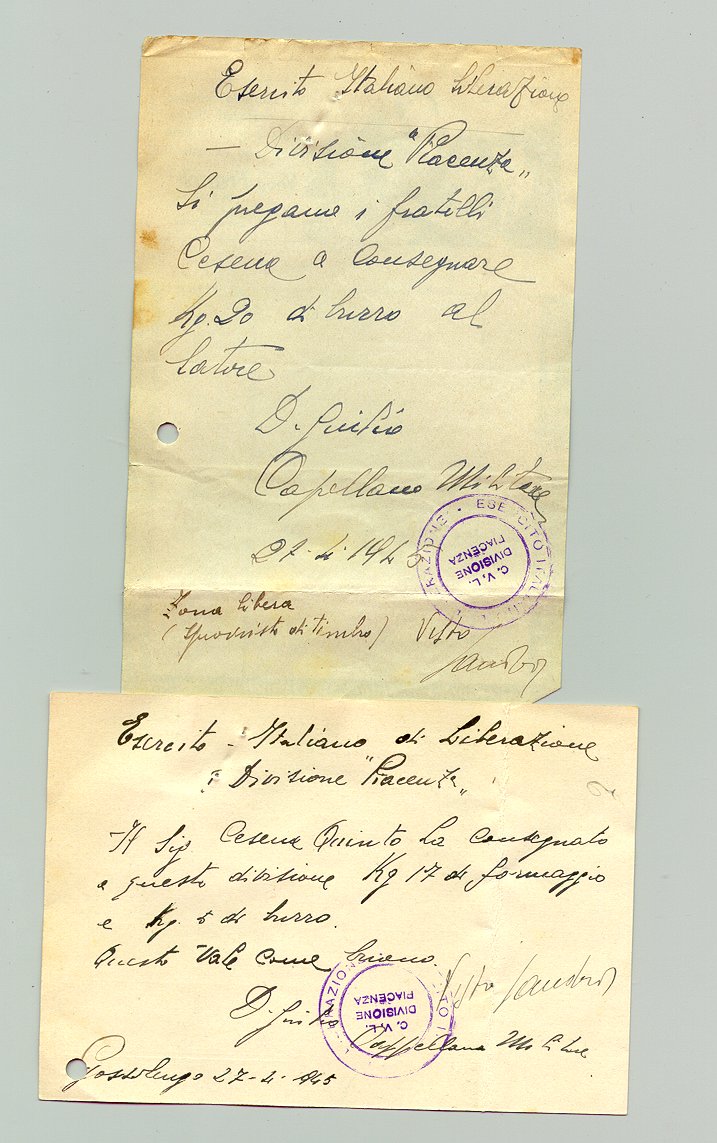 Esercito Italiano Liberazione
— Divisione "Piacenza"
Si pregano i fratelli
Cesena a consegnare
Kg. 20 di burro al
latore
D. Giulio
Capellano Militare
27-4-194
ESERCITO ITAL RAZIONE
C. V. L.
DIVISIONE
PIACENZA
Zona Libera
(sprovvisto di timbro) Visto
Esercito - Italiano di Liberazione
Divisione "Piacenza"
Il Sig Cesena Quinto ha consegnato
a questa divisione Kg 17 di formaggio
e Kg. 5 di burro.
Questo Vale come buono.
Visto
RAZIO ITO I
C. V. L.
DIVISIONE
PIACENZA
D. Giulio
Cappellano Militare
Gossolengo 27-4-945